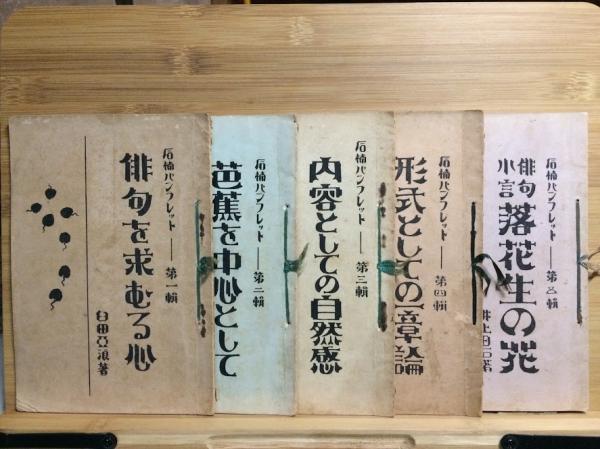 石楠パンフレット——第一輯
俳句を求むる心
臼田亞浪著
石楠パンフレット——第二輯
芭蕉を中心として
石楠パンフレット——第三輯
内容としての自然感
石楠パンフレット——第四輯
形式としての一章論
石楠パンフレット——第五輯
俳句小言
落花生の花